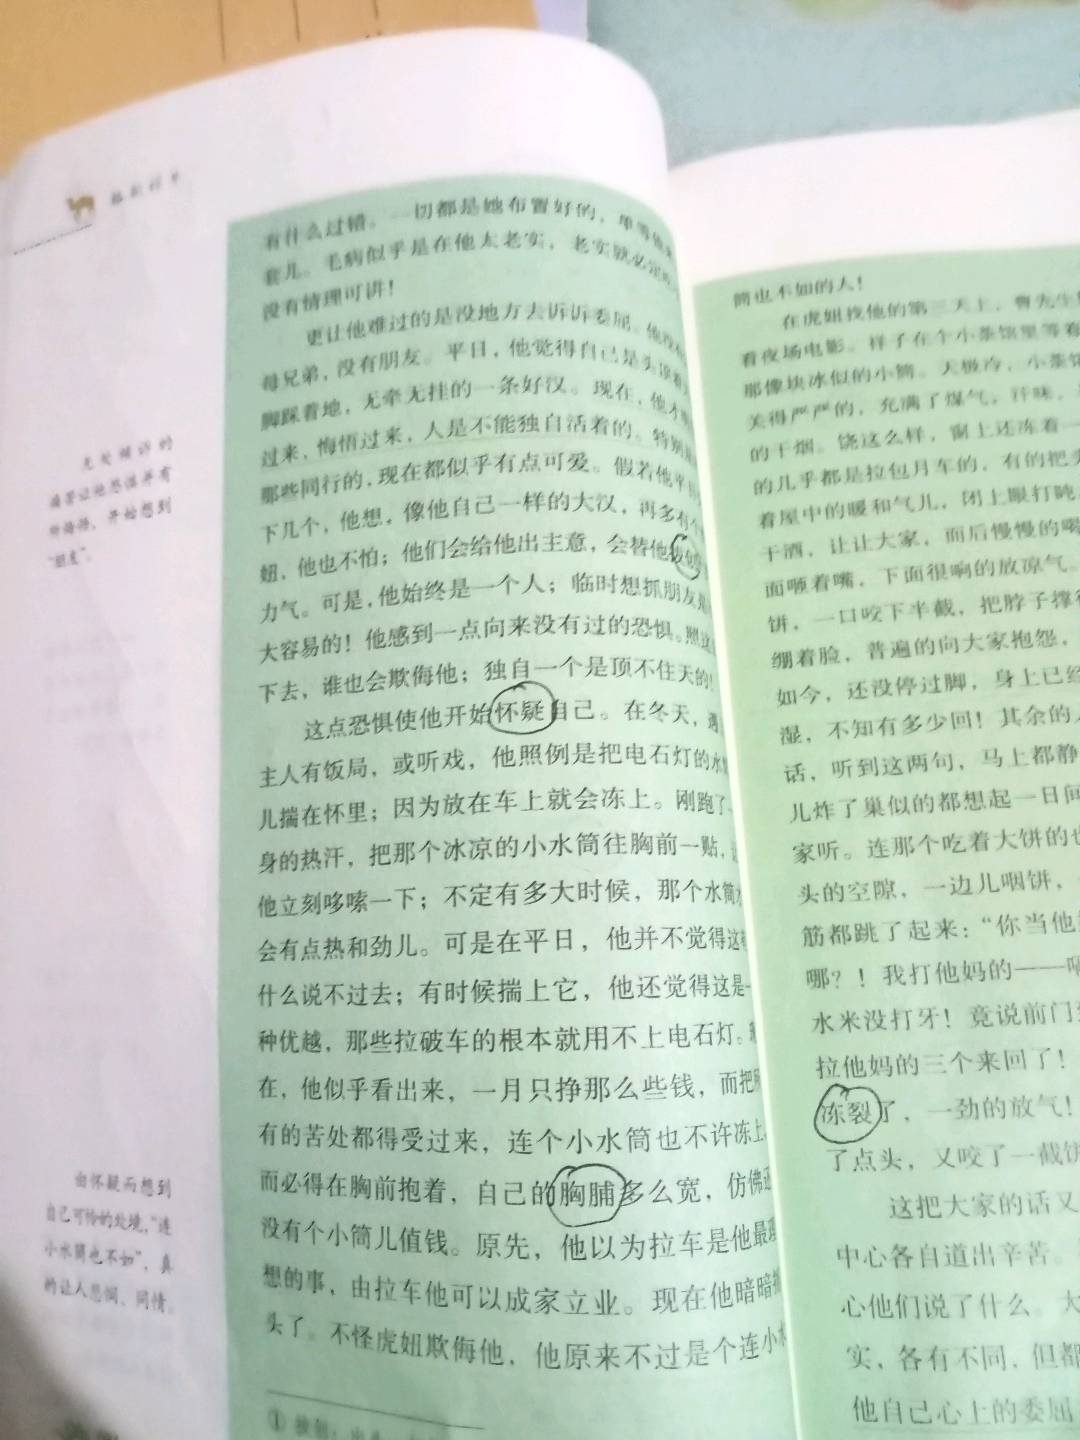 骆驼祥子
有什么过错。一切都是她布置好的，单等他来
套儿。毛病似乎是在他太老实，老实就必定吃
没有情理可讲！
更让他难过的是没地方去诉诉委屈。他没有
母兄弟，没有朋友。平日，他觉得自己是头顶着
脚踩着地，无牵无挂的一条好汉。现在，他才
过来，悔悟过来，人是不能独自活着的。特别是
那些同行的，现在都似乎有点可爱。假若他平日
下几个，他想，像他自己一样的大汉，再多有个
妞，他也不怕；他们会给他出主意，会替他
力气。可是，他始终是一个人；临时想抓朋友是
大容易的！他感到一点向来没有过的恐惧。照这
下去，谁也会欺侮他；独自一个是顶不住天的！
这点恐惧使他开始怀疑自己。在冬天，遇
主人有饭局，或听戏，他照例是把电石灯的水
儿揣在怀里；因为放在车上就会冻上。刚跑了
身的热汗，把那个冰凉的小水筒往胸前一贴，
他立刻哆嗦一下；不定有多大时候，那个水筒
会有点热和劲儿。可是在平日，他并不觉得这
什么说不过去；有时候揣上它，他还觉得这是一
种优越，那些拉破车的根本就用不上电石灯。现
在，他似乎看出来，一月只挣那么些钱，而把所
有的苦处都得受过来，连个小水筒也不许冻上，
而必得在胸前抱着，自己的胸脯多么宽，仿佛还
没有个小筒儿值钱。原先，他以为拉车是他最理
想的事，由拉车他可以成家立业。现在他暗暗摇
头了。不怪虎妞欺侮他，他原来不过是个连小水
无处倾诉的
痛苦让他恐惧并有
所悔悟，开始想到
“朋友”。
由怀疑而想到
自己可怜的处境，“连
小水筒也不如”，真
的让人悲悯、同情。
筒也不如的人！
在虎妞找他的第三天上，曹先生
看夜场电影，祥子在个小茶馆里等着
那像块冰似的小筒。天极冷，小茶馆
关得严严的，充满了煤气，汗味，
的干烟。饶这么样，窗上还冻着一
的几乎都是拉包月车的，有的把头
着屋中的暖和气儿，闭上眼打盹
干酒，让让大家，而后慢慢的喝
面咂着嘴，下面很响的放凉气。
饼，一口咬下半截，把脖子撑得
绷着脸，普遍的向大家抱怨，
如今，还没停过脚，身上已经
湿，不知有多少回！其余的人
话，听到这两句，马上都静
儿炸了巢似的都想起一日间
家听。连那个吃着大饼的也
头的空隙，一边儿咽饼，
筋都跳了起来：“你当他
哪？！我打他妈的——嗝
水米没打牙！竟说前门
拉他妈的三个来回了！
冻裂了，一劲的放气！
了点头，又咬了一截饼
这把大家的话又
中心各自道出辛苦。
心他们说了什么。大
实，各有不同，但都
他自己心上的委屈